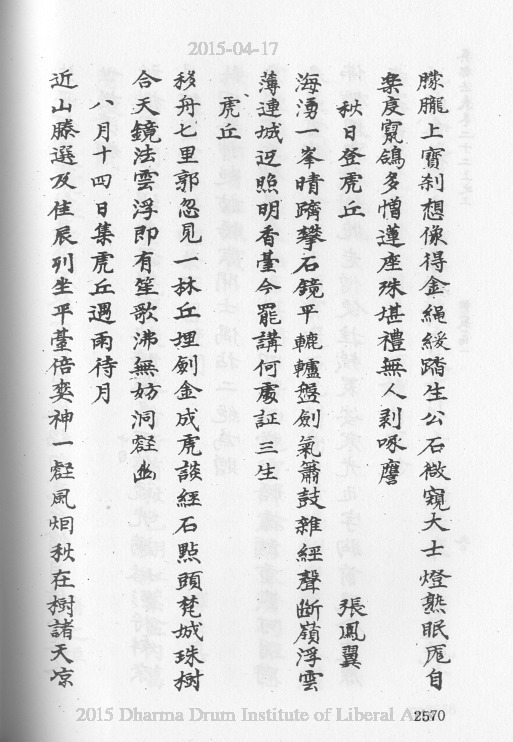 2015-04-17
朦朧上寶刹想像得金繩緩踏生公石微窺大士燈熟眠厖自
樂度竄鴿多憎蓮座殊堪禮無人剥啄譍
秋日登虎丘 張鳳翼
海湧一峯晴躋攀石鏡平轆轤盤劍氣簫鼓雜經聲斷嶺浮雲
薄連城返照明香臺今罷講何處証三生
虎丘
移舟七里郭忽見一林丘埋劍金成虎談經石點頭梵城珠樹
合天鏡法雲浮即有笙歌沸無妨洞壑幽
八月十四日集虎丘遇雨待月
近山勝選及佳辰列坐平臺倍奕神一壑風烟秋在樹諸天凉
2570
2015 Dharma Drum Institute of Liberal Arts